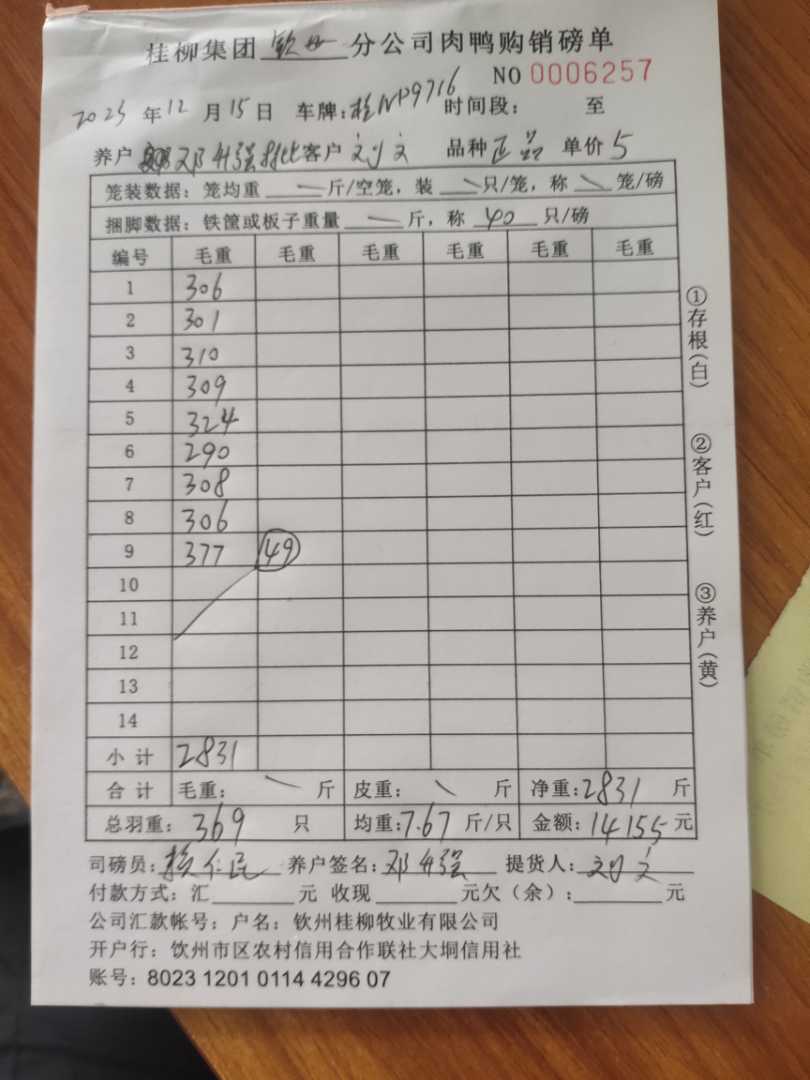 桂柳集团 钦州 分公司肉鸭购销磅单
NO 0006257
2025 年 12 月 15 日 车牌：桂NP9716 时间段： 至
养户 邓升强 批 客户 刘文 品种 正品 单价 5
笼装数据：笼均重 — 斤/空笼，装 — 只/笼，称 — 笼/磅
捆脚数据：铁筐或板子重量 — 斤，称 40 只/磅
编号 毛重 毛重 毛重 毛重 毛重 毛重
1 306
2 301
3 310
4 309
5 324
6 290
7 308
8 306
9 377 49
10
11
12
13
14
小 计 2831
合 计 毛重： — 斤 皮重： — 斤 净重：2831 斤
总羽重： 369 只 均重：7.67 斤/只 金额：14155 元
司磅员： 仁民 养户签名：邓升强 提货人：刘文
付款方式：汇 元 收现 元欠（余）： 元
公司汇款帐号：户名：钦州桂柳牧业有限公司
开户行：钦州市区农村信用合作联社大垌信用社
账号：8023 1201 0114 4296 07
①存根（白）
②客户（红）
③养户（黄）